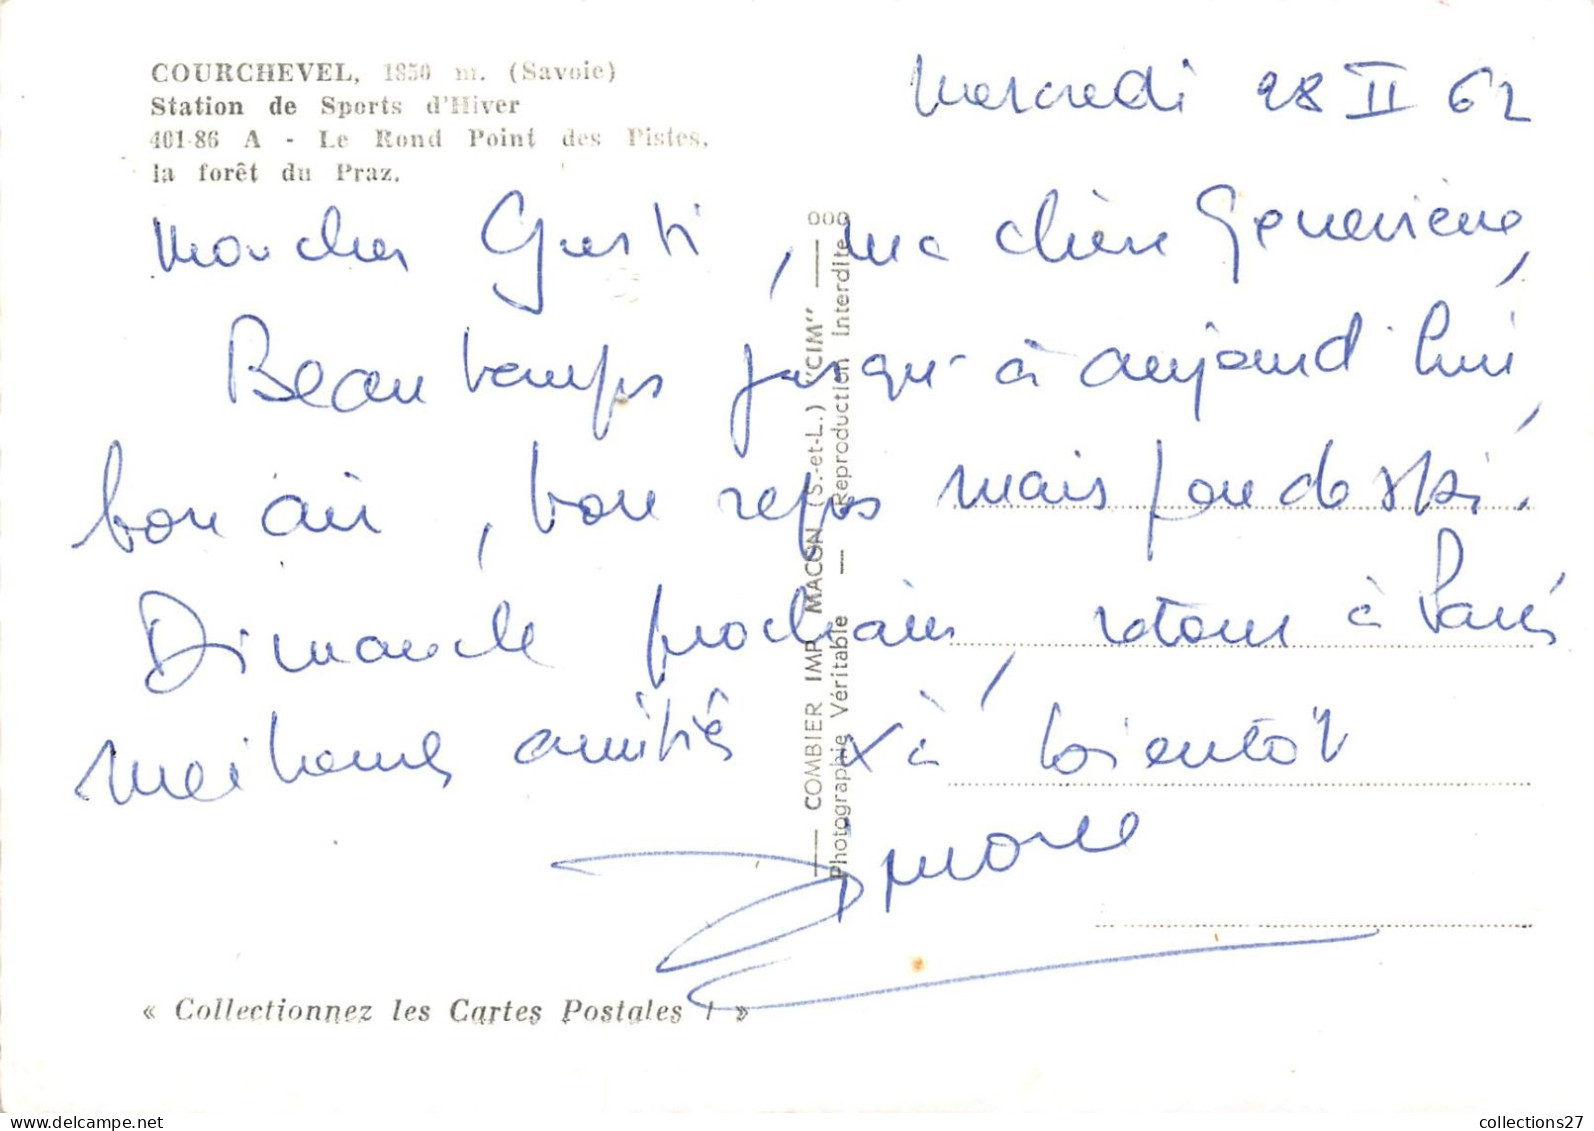 COURCHEVEL, 1850 m. (Savoie)
Station de Sports d'Hiver
401-86 A - Le Rond Point des Pistes,
la forêt du Praz.
Mercredi 28 II 62
Mon cher Gusti, ma chère Geneviève,
Beau temps jusqu'à aujourd'hui,
bon air, bon repos mais peu de ski.
Dimanche prochain, retour à Paris
Meilleures amitiés & à bientôt
Simone
COMBIER IMP. MACON (S.-et-L.) "CIM"
Photographie Véritable — Reproduction Interdite
« Collectionnez les Cartes Postales ! »
collections27